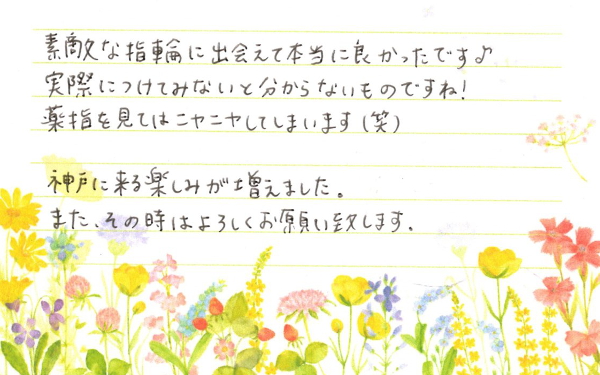 素敵な指輪に出会えて本当に良かったです♪
実際につけてみないと分からないものですね!
薬指を見てはニヤニヤしてしまいます(笑)
神戸に来る楽しみが増えました。
また、その時はよろしくお願い致します。